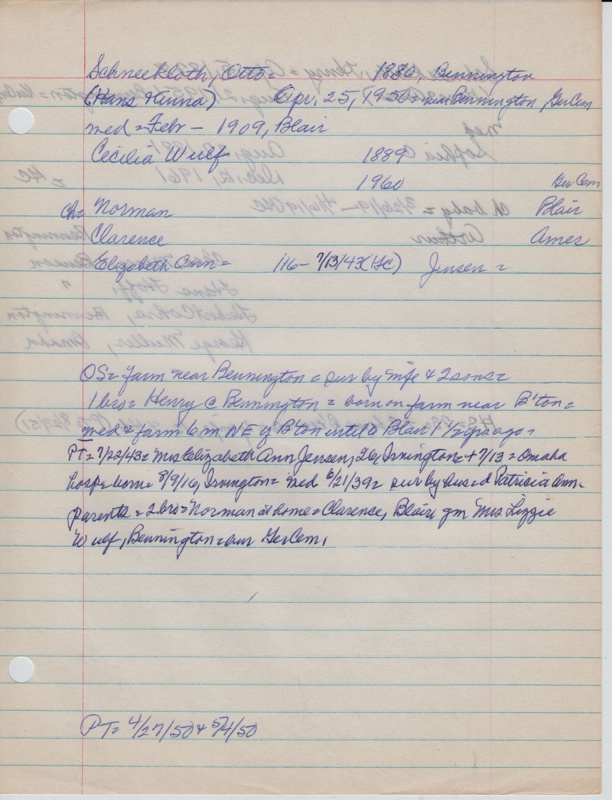 Schneekloth, Otto = 1880, Bennington
(Hans & Anna) Apr. 25, 1950 = near Bennington GerCem
med = Febr - 1909, Blair
Cecilia Wulf 1889
1960 GerCem
Ch = Norman Blair
Clarence Ames
Elizabeth Ann = 1916 - 7/13/43 (HC) Jensen =
OS = farm near Bennington = sur by wife & 2 sons =
1 bro = Henry @ Bennington = born on farm near B'ton =
med & farm 6 m NE of B'ton until to Blair 1 1/2 yrs ago =
PT = 7/22/43 = Mrs Elizabeth Ann Jensen, 26, Irvington = + 7/13 = Omaha
hosp = born = 8/9/16, Irvington = med 6/21/39 = sur by hus = d Patricia Ann =
parents = 2 bro = Norman at home = Clarence, Blair, gm Mrs Lizzie
Wulf, Bennington = bur GerCem,
PT = 4/27/50 & 5/4/50